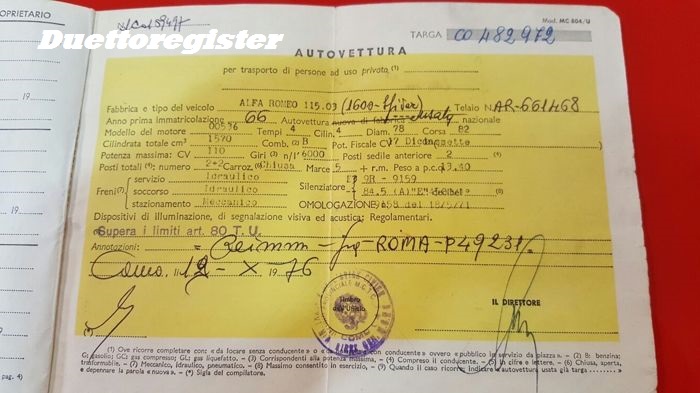 Duettoregister
Mod. MC 804/U
PROPRIETARIO
TARGA CO 482972
AUTOVETTURA
per trasporto di persone ad uso privato (1)
Fabbrica e tipo del veicolo ALFA ROMEO 115.03 (1600- Telaio N. AR-661468
Anno prima immatricolazione 66 Autovettura nuova di fabbrica usata nazionale
Modello del motore 00536 Tempi 4 Cilin. 4 Diam. 78 Corsa 82
Cilindrata totale cm³ 1570 Comb. (2) B Pot. Fiscale CV 17 Diciassette
Potenza massima: CV 110 Giri (3) n/1' 6000 Posti sedile anteriore 2
Posti totali (4): numero 2+2 Carroz. (6) Chiusa Marce 5 + r.m. Peso a p.c.
servizio Idraulico
Freni (7) soccorso Idraulico Silenziatore 9R - 9159
stazionamento Meccanico OMOLOGAZIONE
Dispositivi di illuminazione, di segnalazione visiva ed acustica; Regolamentari.
Supera i limiti art. 80 T. U.
Annotazioni: = Reimm - ROMA-P49231.
Como, 12 - X - 1976
Timbro dell'Ufficio
IL DIRETTORE
(*)
(1) Ove ricorre completare con: « da locare senza conducente » o « da locare con conducente » ovvero « pubblico in servizio da piazza ». - (2) B: benzina;
G: gasolio; GC: gas compresso; GL: gas liquefatto. - (3) Corrispondenti alla potenza massima. - (4) Compreso il conducente. - (5) In cifre e lettere. - (6) Chiusa, aperta,
trasformabile. - (7) Meccanico, idraulico, pneumatico. - (8) Massimo consentito in esercizio. - (9) Quando il caso ricorre: Indicare « autovettura usata già targa ..... »
e depennare la parola « nuova ». - (*) Sigla del compilatore.
pag. 4)